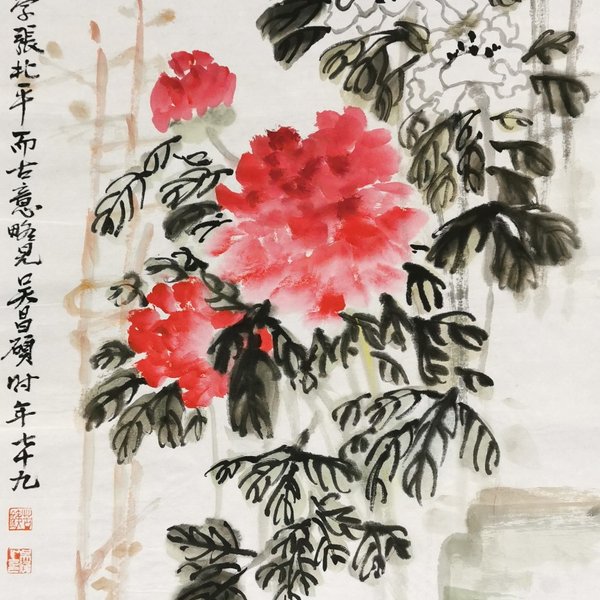 字張北平而古意略見吴昌碩时年七十九